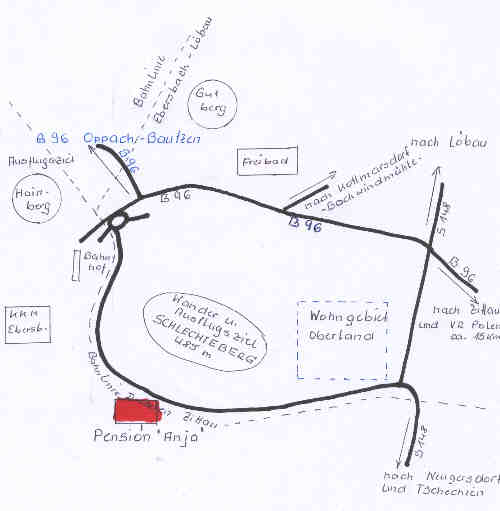 Bahnlinie
Ebersbach-Löbau
Gut
berg
B 96 Oppach-Bautzen
B 96
Ausflugsziel
Hain-
berg
Freibad
nach Löbau
nach Kottmarsdorf
-Bockwindmühle-
B 96
B 96
S 148
B 96
Bahn
hof
nach Zittau
und VR Polen
ca. 15 km
KKH
Ebersb.
Wander u.
Ausflugsziel
SCHLECHTEBERG
485 m
Wohngebiet
Oberland
Bahnlinie
Zittau
Pension "Anja"
S 148
nach Neugersdorf
und Tschechien